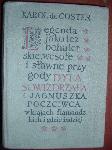 KAROL de COSTER
Legenda
jako też
bohater
skie, wesołe
i sławne przy
gody DYLA
SOWIZDRZAŁA
I JAGNUSZKA
POCZEWCA
w krajach flamandz
kich i gdzie indziej